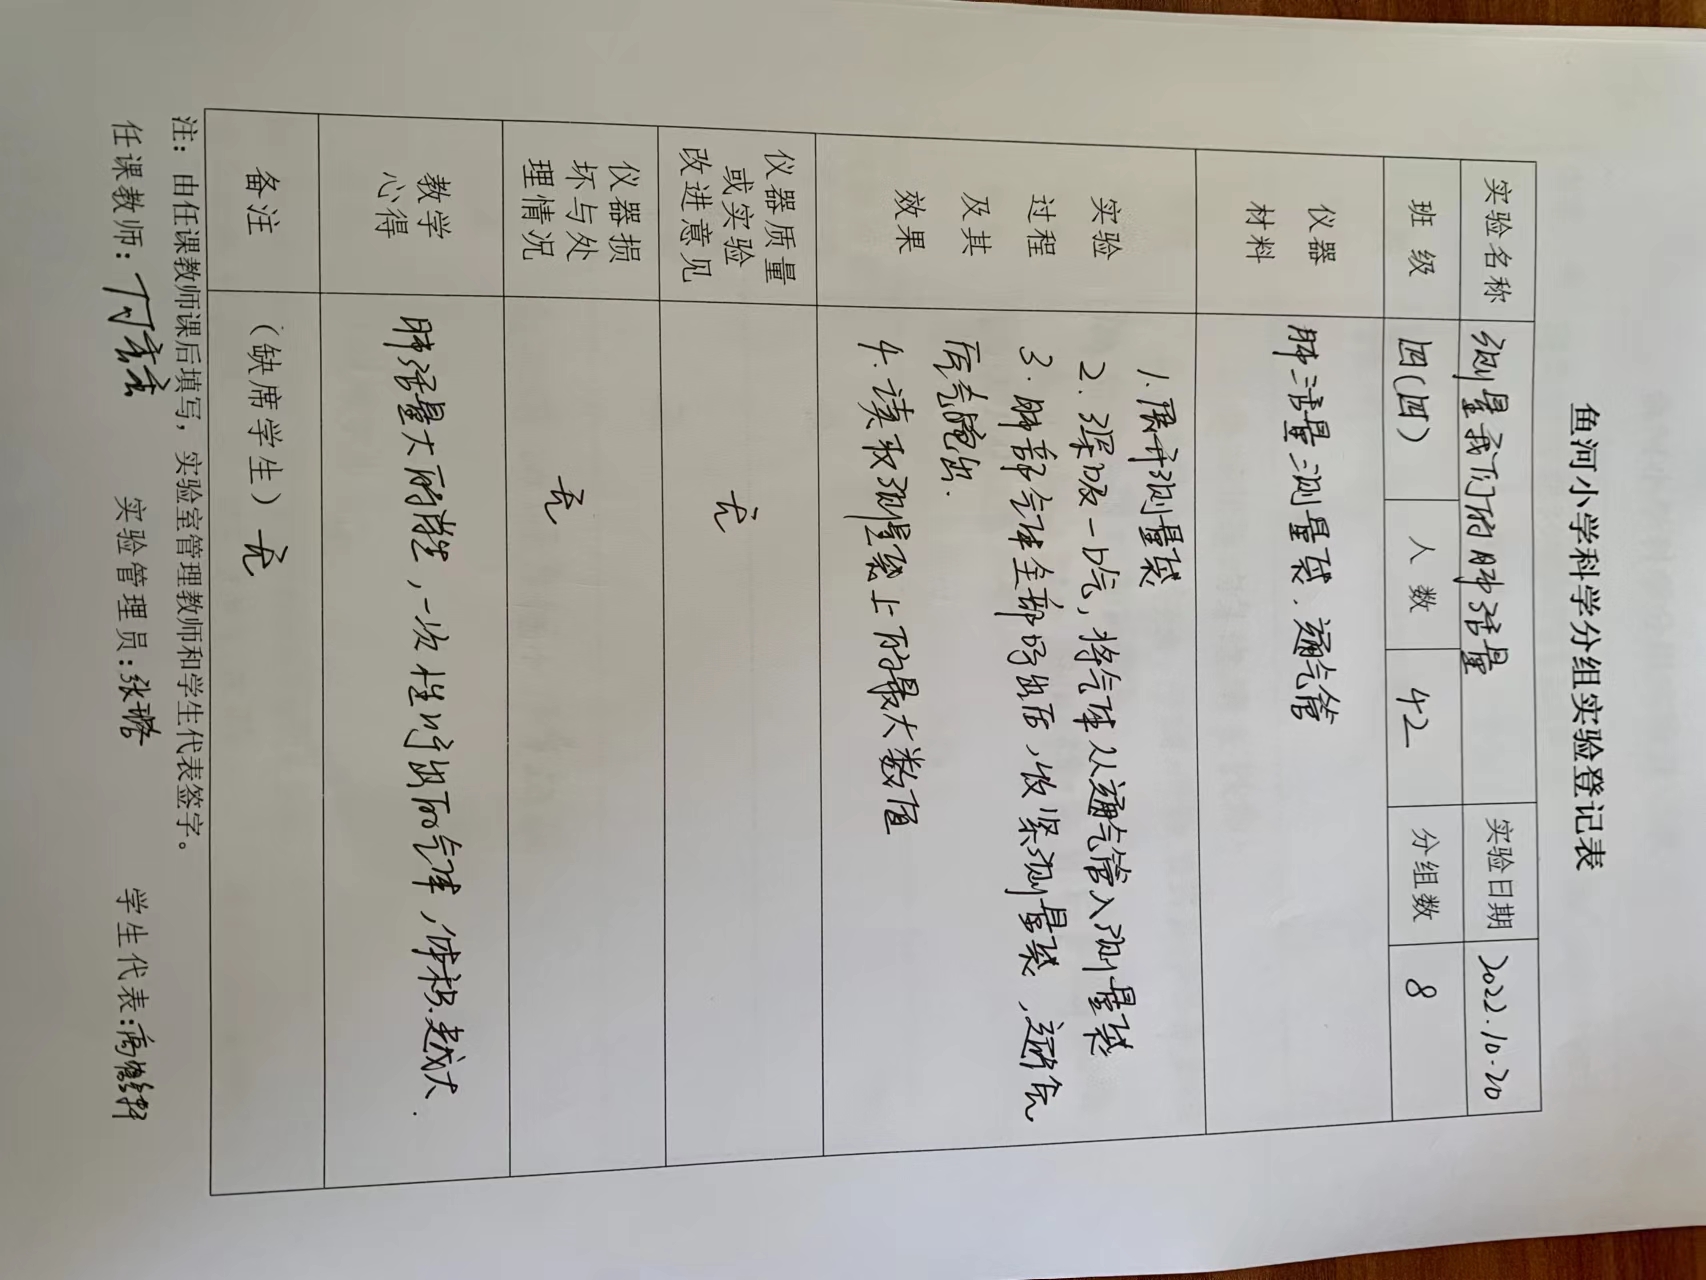 鱼河小学科学分组实验登记表
实验名称 测量我们的肺活量 实验日期 2022.10.20
班级 四(四) 人数 42 分组数 8
仪器
材料
肺活量测量袋、通气管
实验
过程
及其
效果
1.展开测量袋
2.深吸一口气,将气体从通气管入测量袋
3.肺部气体全部呼出后,收紧测量袋,
4.读取测量袋上的最大数值
仪器质量
或实验
改进意见
无
仪器损
坏与处
理情况
无
教学
心得
肺活量大的学生,一次性呼出的气体,体积越大.
备注
(缺席学生)无
注:由任课教师课后填写,实验室管理教师和学生代表签字。
任课教师: 实验管理员:张璐 学生代表: